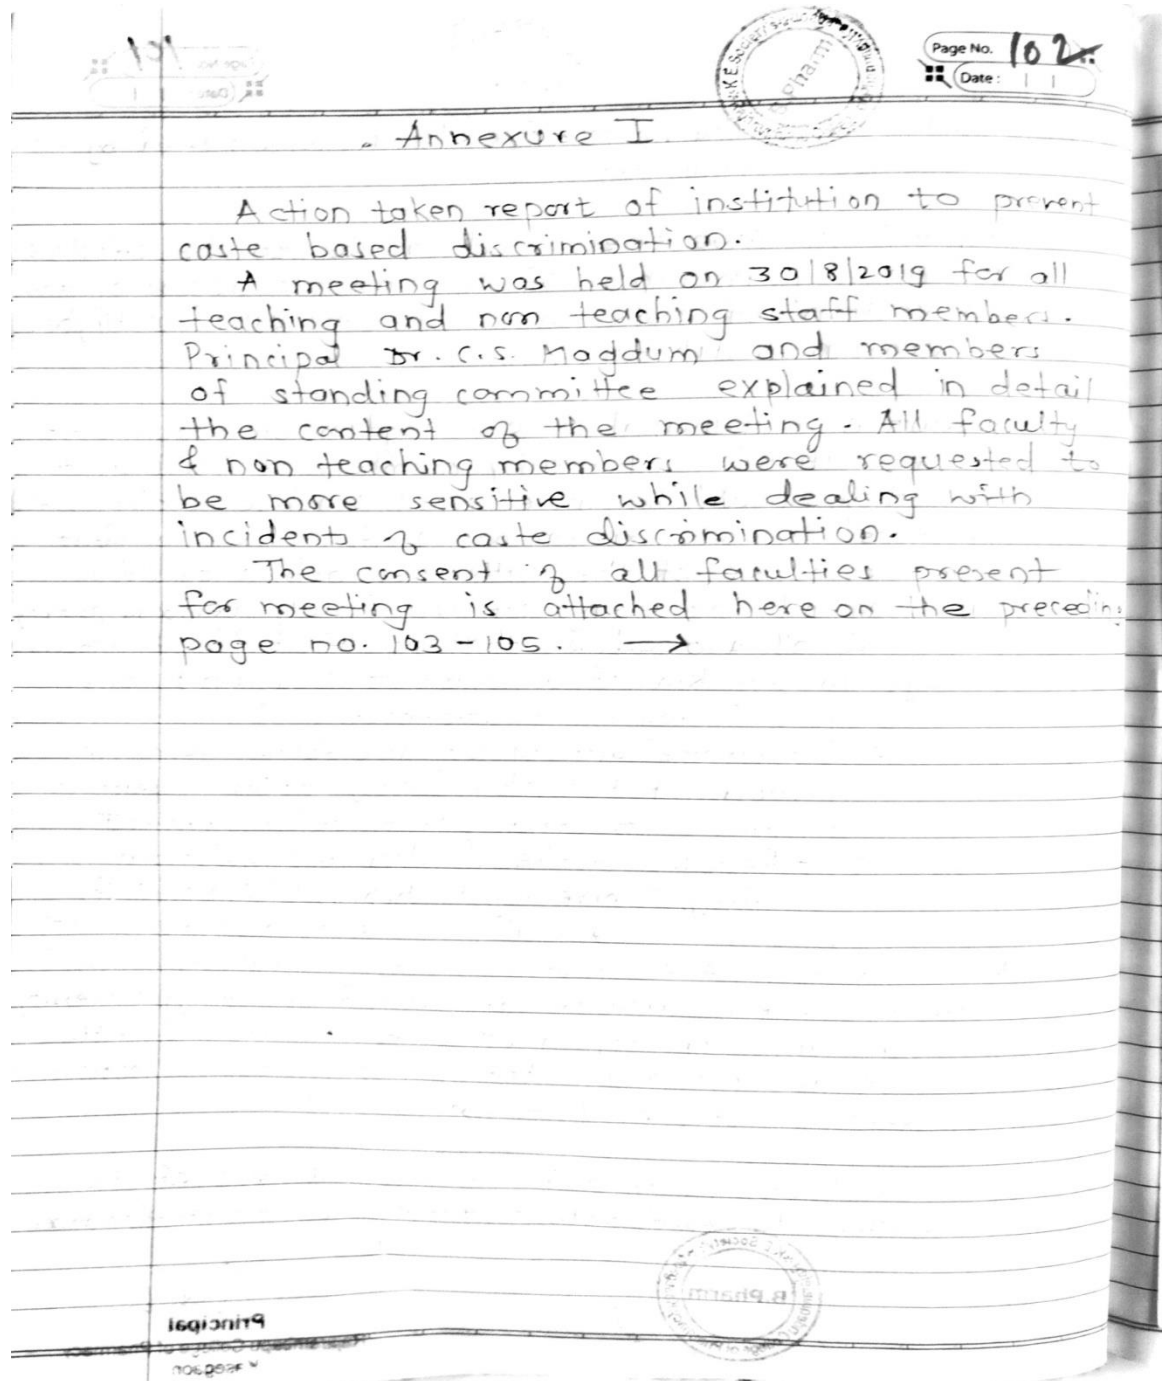 Page No. 102
Date:
B. Pharm
Annexure I
Action taken report of institution to prevent
caste based discrimination.
A meeting was held on 30/8/2019 for all
teaching and non teaching staff members.
Principal Dr. C.S. Magdum and members
of standing committee explained in detail
the content of the meeting. All faculty
& non teaching members were requested to
be more sensitive while dealing with
incidents of caste discrimination.
The consent of all faculties present
for meeting is attached here on the preceding
page no. 103-105. →
B.Pharm
Principal